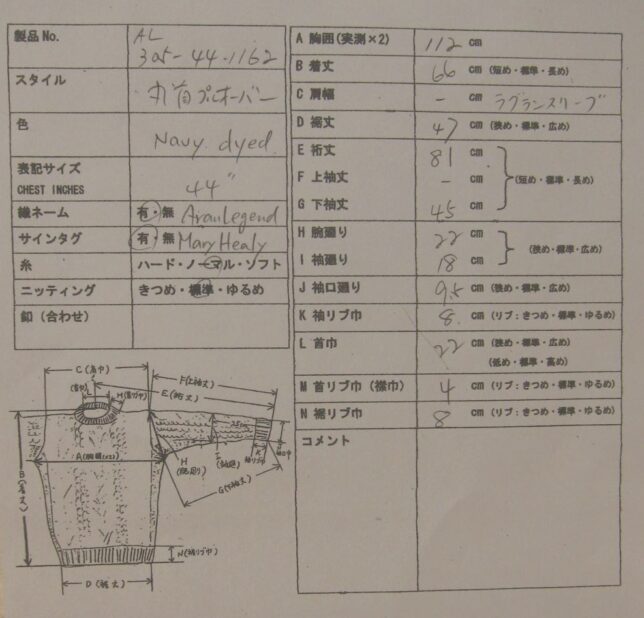 製品No.
AL
305-44-1162
スタイル
丸首プルオーバー
色
Navy dyed
表記サイズ
CHEST INCHES
44"
織ネーム
有・無 AranLegend
サインタグ
有・無 Mary Healy
糸
ハード・ノーマル・ソフト
ニッティング
きつめ・標準・ゆるめ
釦（合わせ）
A 胸囲(実測×2)
112 cm
B 着丈
66 cm (短め・標準・長め)
C 肩幅
- cm ラグランスリーブ
D 裾丈
47 cm (狭め・標準・広め)
E 裄丈
81 cm
F 上袖丈
- cm (短め・標準・長め)
G 下袖丈
45 cm
H 腕廻り
22 cm
(狭め・標準・広め)
I 袖廻り
18 cm
J 袖口廻り
9.5 cm (狭め・標準・広め)
K 袖リブ巾
8 cm (リブ：きつめ・標準・ゆるめ)
L 首巾
22 cm (狭め・標準・広め)
(低め・標準・高め)
M 首リブ巾（襟巾）
4 cm (リブ：きつめ・標準・ゆるめ)
N 裾リブ巾
8 cm (リブ：きつめ・標準・ゆるめ)
コメント
C(肩巾)
F(上袖丈)
E(裄丈)
L
(首巾)
M(首リブ巾)
A(胸囲(x2))
B(着丈)
H
(腕廻)
I
(袖廻)
K
袖リブ巾
J
袖口巾
G(下袖丈)
N(裾リブ巾)
D(裾丈)